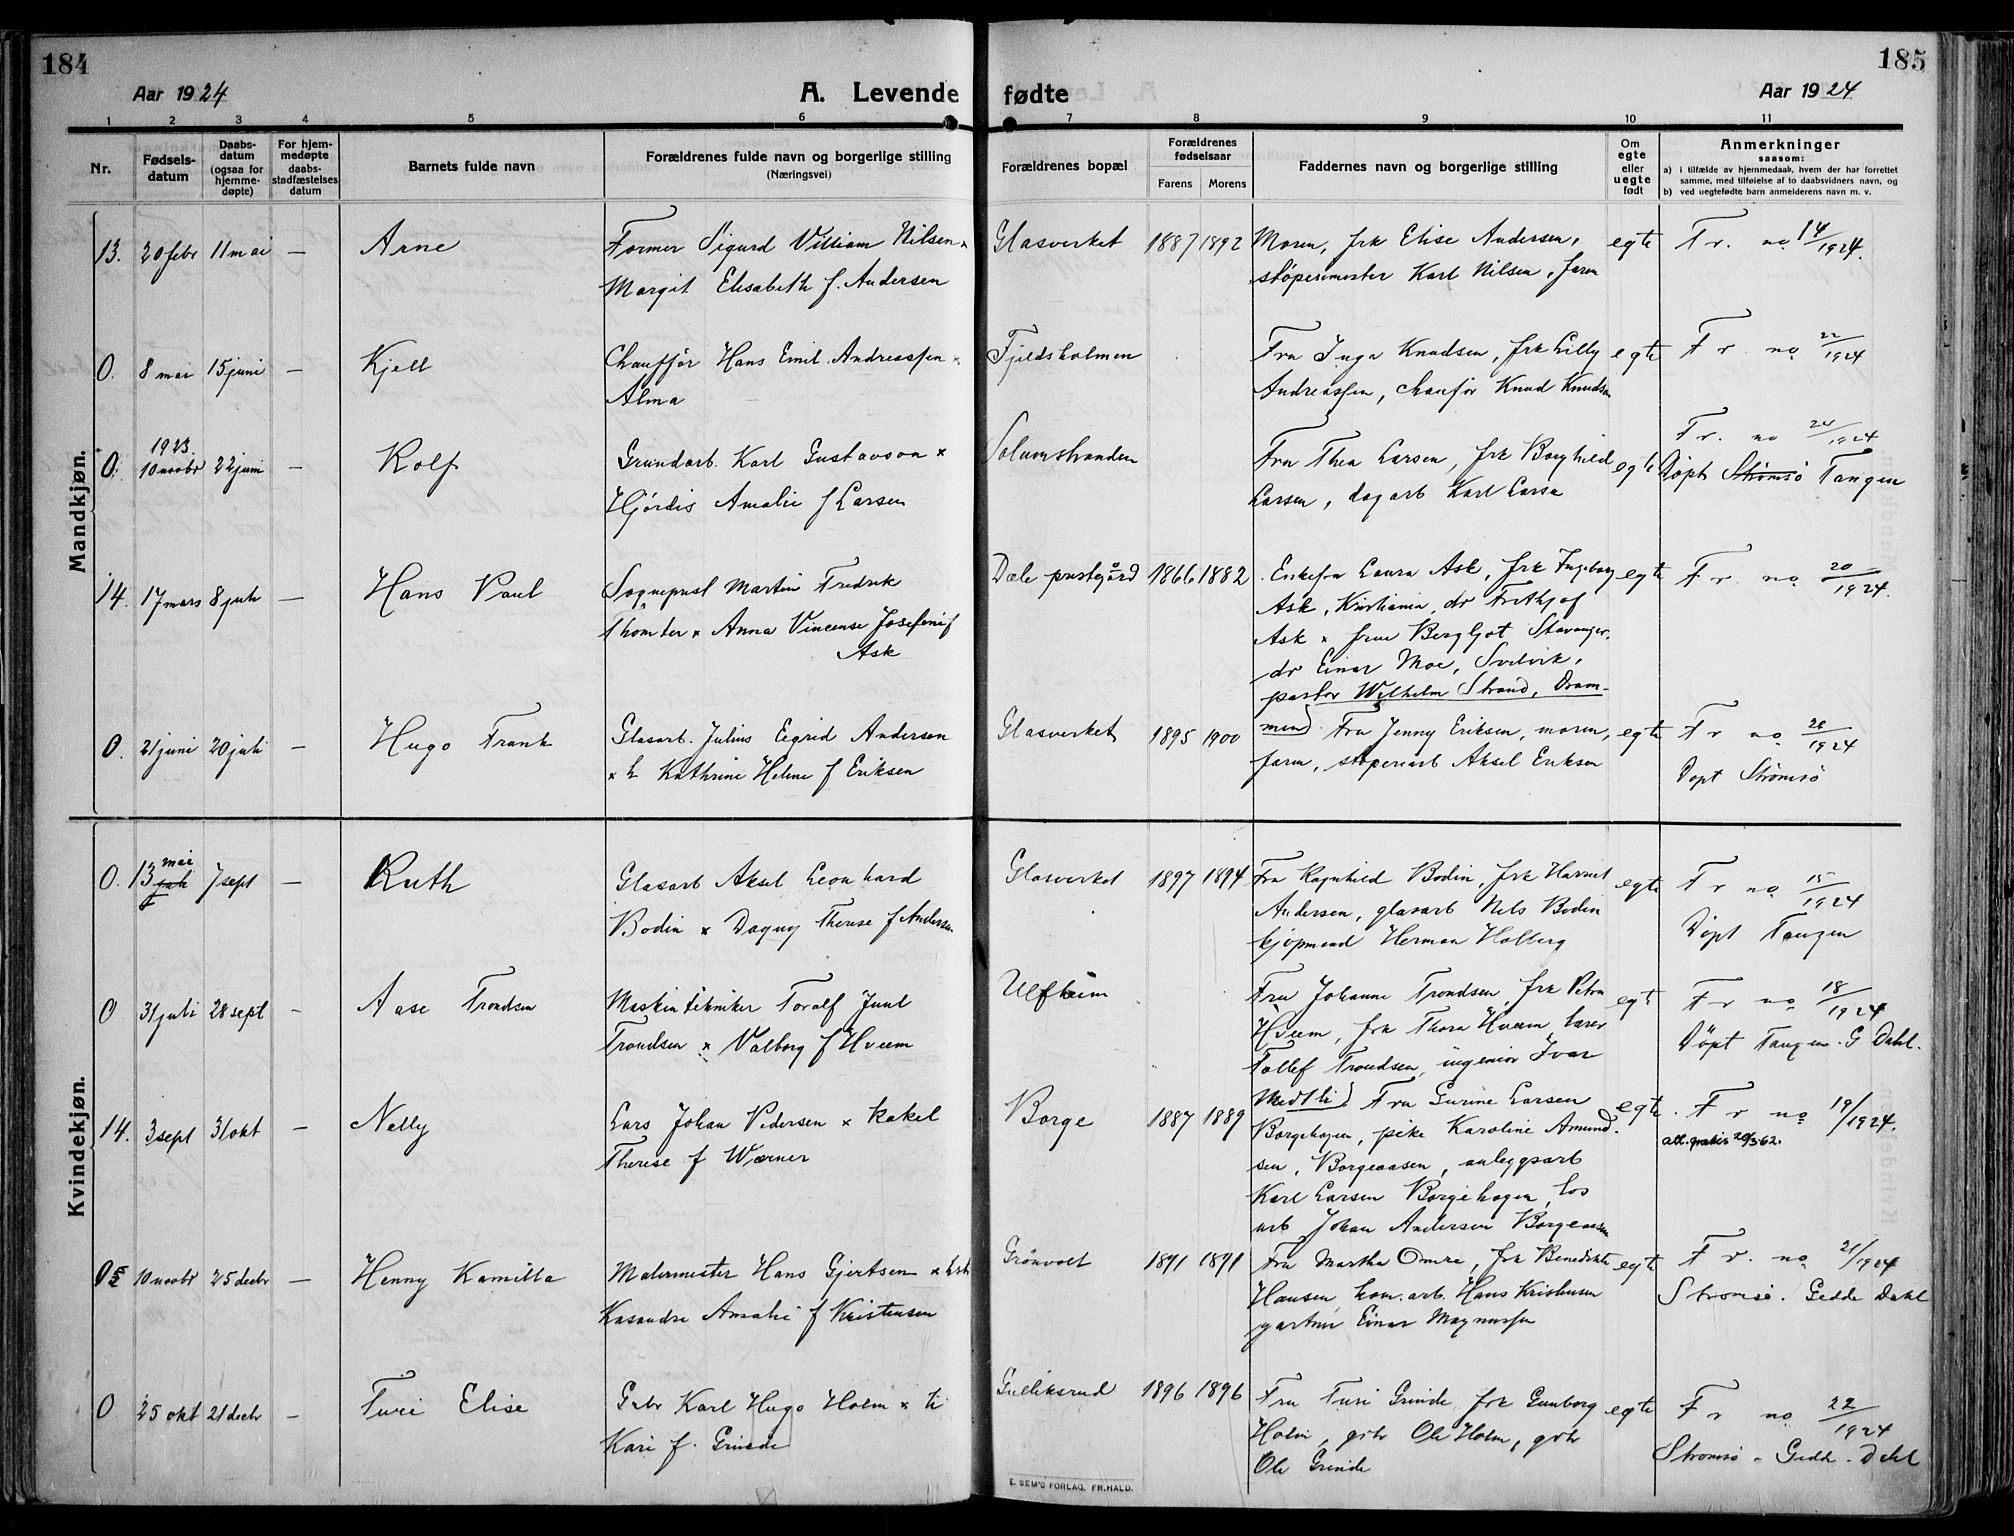 184
185
Aar 1924
A. Levende fødte
Aar 1924
1 2 3 4 5 6 7 8 9 10 11
Nr.
Fødselsdatum
Daabsdatum (ogsaa for hjemmedøpte)
For hjemmedøpte daabsstadfæstelses datum
Barnets fulde navn
Forældrenes fulde navn og borgerlige stilling
(Næringsvei)
Forældrenes bopæl
Forældrenes fødselsaar
Farens Morens
Faddernes navn og borgerlige stilling
Om egte eller uegte født
Anmerkninger
saasom:
a) i tilfælde av hjemmedaab, hvem der har forrettet
samme, med tilføielse af to daabsvidners navn, og
b) ved uegtefødte barn anmelderens navn m. v.
Mandkjøn.
13. 20 febr 11 mai — Arne Former Sigurd Villiam Nilsen x Glasverket 1887 1892 Moren, frk Elise Andersen, egte Fr. no 14/1924.
Margit Elisabeth f. Andersen støperimester Karl Nilsen, faren
0. 8 mai 15 juni — Kjell Chauffør Hans Emil Andreassen x Fjeldsholmen Fru Inga Knudsen, frk Lilly egte Fr no 22/1924
Alma Andreassen, chaufør Knud Knudsen
1923.
0. 10 novbr 22 juni — Rolf Grundarb. Karl Gustavson x Solumstranden Fru Thea Larsen, frk Borghild egte Fr. no 24/1924
Hjørdis Amalie f Larsen Larsen, dagarb Karl Larsen Døpt Strømsø Tangen
14. 17 mars 8 juli — Hans Paul Sogneprest Martin Fredrik Dale prestegård 1866 1882 Enkefru Laura Ask, frk Ingeborg egte Fr. no 20/1924.
Thomter x Anna Vincense Josefine f Ask, Kristiania, dr Frithjof
Ask Ask x frue Bergljot Stavanger,
dr Einar Moe, Svelvik,
pastor Wilhelm Strand, Dram-
0. 21 juni 20 juli — Hugo Frank Glasarb. Julius Eigrid Andersen Glasverket 1895 1900 men) Fru Jenny Eriksen, moren, egte Fr no 26/1924
x h Kathrine Helene f Eriksen faren, støperiarb Aksel Eriksen Døpt Strømsø
Kvindekjøn.
mai
0. 13 juli 7 sept — Ruth Glasarb Aksel Leonhard Glasverket 1897 1894 Fru Ragnhild Bodin, frk Harriet egte Fr no 15/1924
Bodin x Dagny Therese f Andersen Andersen, glasarb Nels Bodin Døpt Tangen
kjøpmand Herman Holberg
0 31 juli 28 sept — Aase Trondsen Maskintekniker Toralf Juul Ulfheim Fru Johanne Trondsen, frk Petra egte Fr no 18/1924
Trondsen x Valborg f Hveem Hveem, frk Thora Hveem, lærer Døpt Tangen. G Dahl.
Tollef Trondsen, ingeniør Ivar
14. 3 sept 31 okt — Nelly Lars Johan Pedersen x Kakel Borge 1887 1889 Medtli) Fru Gurine Larsen egte. Fr no 19/1924.
Therese f Wærner Borgehagen, pike Karoline Amund- att. gratis 20/3-62.
sen, Borgeaasen, anleggsarb
Karl Larsen Borgehagen, los
arb Johan Andersen Borgeaasen
0 10 novbr 25 decbr — Henny Kamilla Malermester Hans Gjertsen x Grönvolt 1891 1891 Fru Martha Omre, frk Benedikte egte Fr. no 21/1924
Kasandre Amalie f Kristensen Hansen, kom. arb. Hans Kristensen Strømsø. Gedde Dahl
gartner Einar Magnussen
0 25 okt 21 decbr — Turi Elise Gbr Karl Hugo Holm x Gulliksrud 1896 1896 Fru Turi Grinde frk Gunborg egte Fr no 22/1924
Kari f. Grinde Holm, gbr Ole Holm, gbr Strømsø - Gedde - Dahl
Ole Grinde
E. SEM'S FORLAG, FR.HALD.